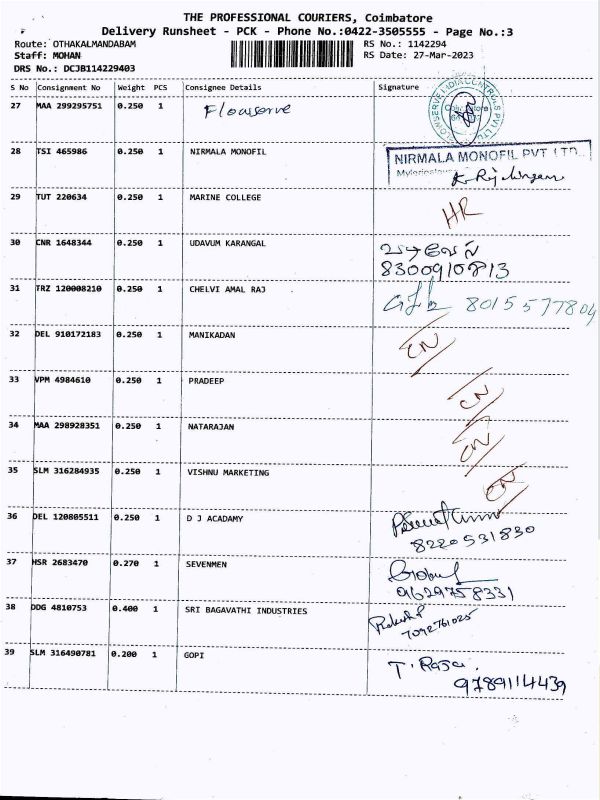 THE PROFESSIONAL COURIERS, Coimbatore
Delivery Runsheet - PCK - Phone No.:0422-3505555 - Page No.:3
Route: OTHAKALMANDABAM RS No.: 1142294
Staff: MOHAN RS Date: 27-Mar-2023
DRS No.: DCJB114229403
S No Consignment No Weight PCS Consignee Details Signature
27 MAA 299295751 0.250 1 Flowserve
28 TSI 465986 0.250 1 NIRMALA MONOFIL NIRMALA MONOFIL PVT LTD.,
29 TUT 220634 0.250 1 MARINE COLLEGE HR
30 CNR 1648344 0.250 1 UDAVUM KARANGAL
8300910813
31 TRZ 120008210 0.250 1 CHELVI AMAL RAJ 8015577804
32 DEL 910172183 0.250 1 MANIKADAN CN
33 VPM 4984610 0.250 1 PRADEEP CN
34 MAA 298928351 0.250 1 NATARAJAN CN
35 SLM 316284935 0.250 1 VISHNU MARKETING CN
36 DEL 120805511 0.250 1 D J ACADAMY
8220531830
37 HSR 2683470 0.270 1 SEVENMEN
9629758331
38 DDG 4810753 0.400 1 SRI BAGAVATHI INDUSTRIES
7092761025
39 SLM 316490781 0.200 1 GOPI T. Raja.
9789114439